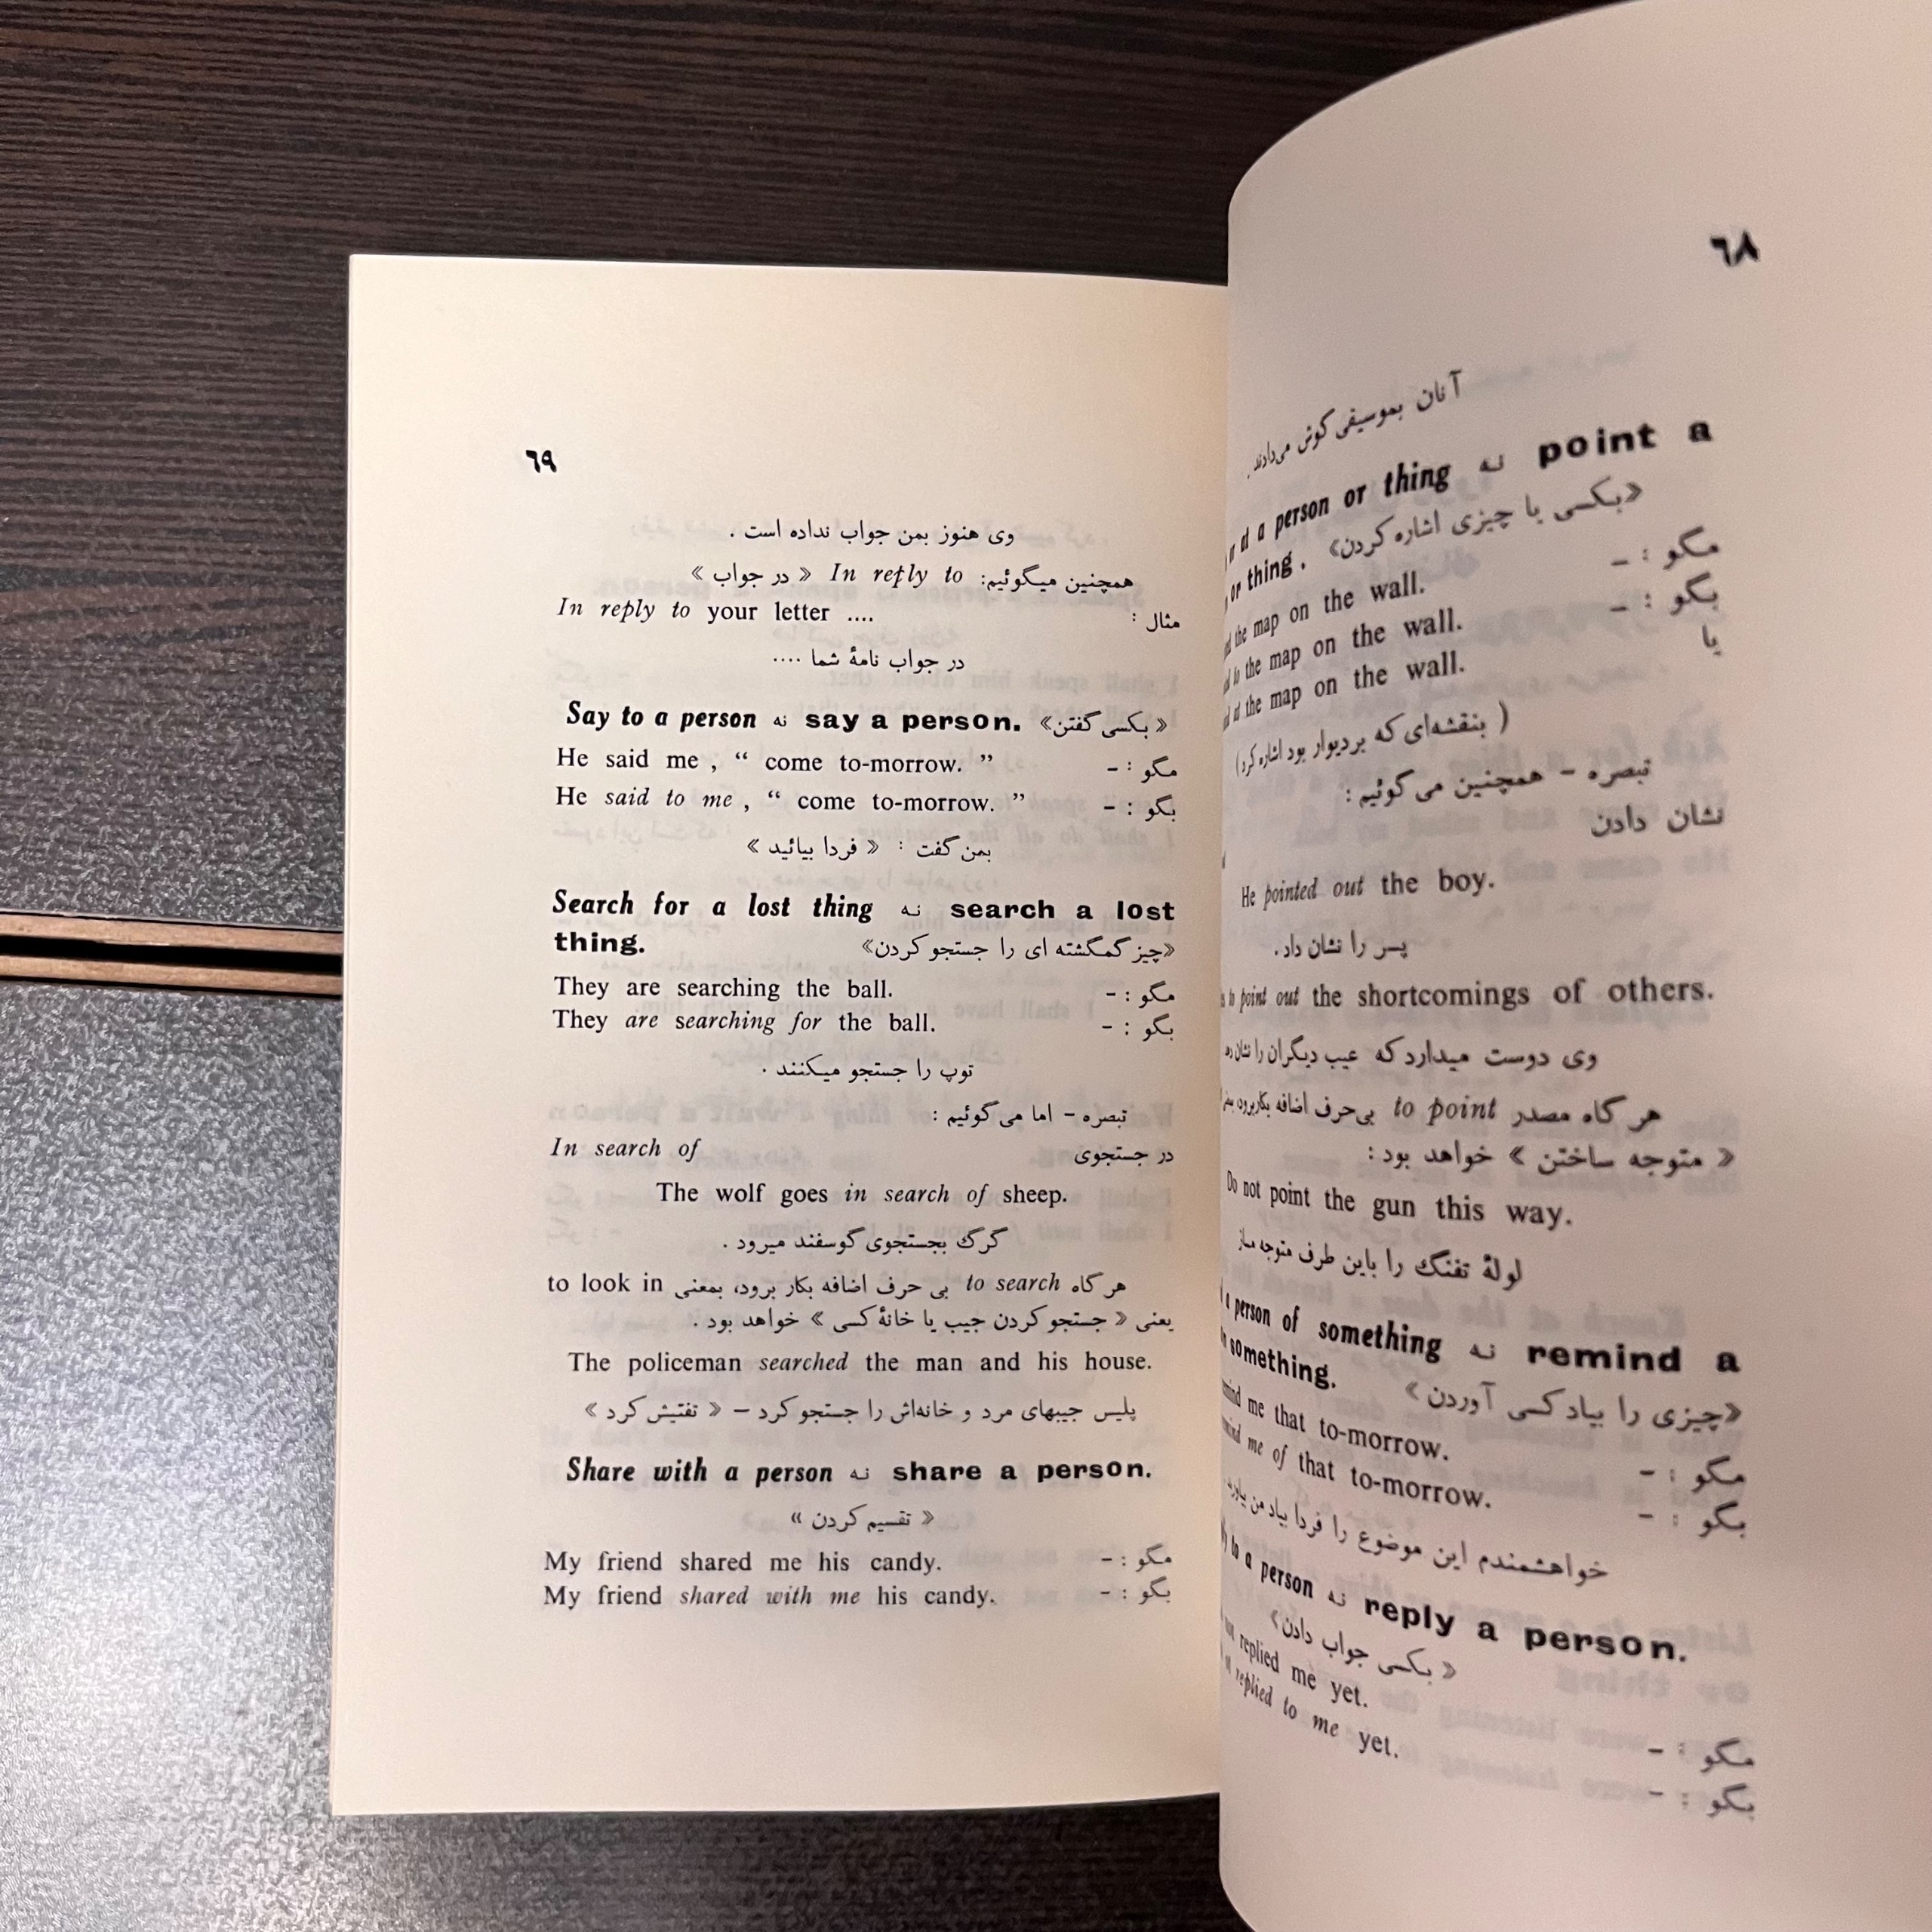 ٦٨
آنان بموسیقی گوش می‌دادند.
a person or thing نه point a
or thing. «بکسی یا چیزی اشاره کردن»
the map on the wall. مگو : -
to the map on the wall. بگو : -
at the map on the wall. یا
( بنقشه‌ای که بردیوار بود اشاره کرد)
تبصره - همچنین می گوئیم :
نشان دادن
He pointed out the boy.
پسر را نشان داد.
to point out the shortcomings of others.
وی دوست میدارد که عیب دیگران را نشان
هر گاه مصدر to point بی‌حرف اضافه بکاررود،
« متوجه ساختن » خواهد بود :
Do not point the gun this way.
لولهٔ تفنگ را باین طرف متوجه مساز
a person of something نه remind a
something. «چیزی را بیاد کسی آوردن»
me that to-morrow. مگو : -
me of that to-morrow. بگو : -
خواهشمندم این موضوع را فردا بیاد من بیاورید
to a person نه reply a person.
« بکسی جواب دادن»
replied me yet. مگو : -
replied to me yet. بگو : -
٦٩
وی هنوز بمن جواب نداده است .
همچنین میگوئیم: In reply to « در جواب »
In reply to your letter .... مثال :
در جواب نامهٔ شما ....
Say to a person نه say a person. «بکسی گفتن »
He said me , “ come to-morrow. ” مگو : -
He said to me , “ come to-morrow. ” بگو : -
بمن گفت : « فردا بیائید »
Search for a lost thing نه search a lost
thing. «چیز گمگشته ای را جستجو کردن»
They are searching the ball. مگو : -
They are searching for the ball. بگو : -
توپ را جستجو میکنند .
تبصره - اما می گوئیم :
In search of در جستجوی
The wolf goes in search of sheep.
گرگ بجستجوی گوسفند میرود .
هر گاه to search بی حرف اضافه بکار برود، بمعنی to look in
یعنی « جستجو کردن جیب یا خانهٔ کسی » خواهد بود .
The policeman searched the man and his house.
پلیس جیبهای مرد و خانه‌اش را جستجو کرد - « تفتیش کرد »
Share with a person نه share a person.
« تقسیم کردن »
My friend shared me his candy. مگو : -
My friend shared with me his candy. بگو : -